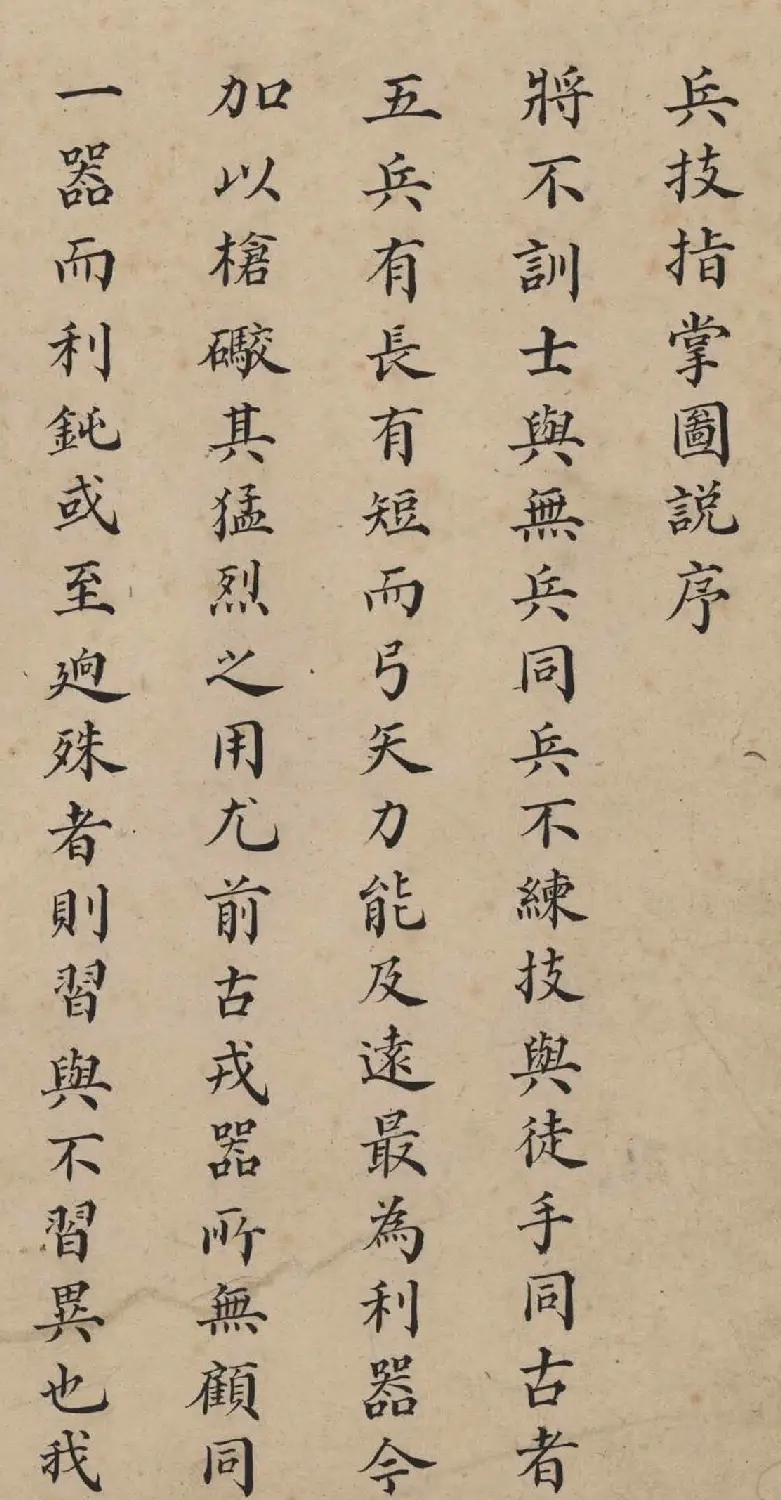 兵技指掌圖説序
將不訓士與無兵同兵不練技與徒手同古者
五兵有長有短而弓矢力能及遠最為利器今
加以槍礮其猛烈之用尤前古戎器所無顧同
一器而利鈍或至逈殊者則習與不習異也我